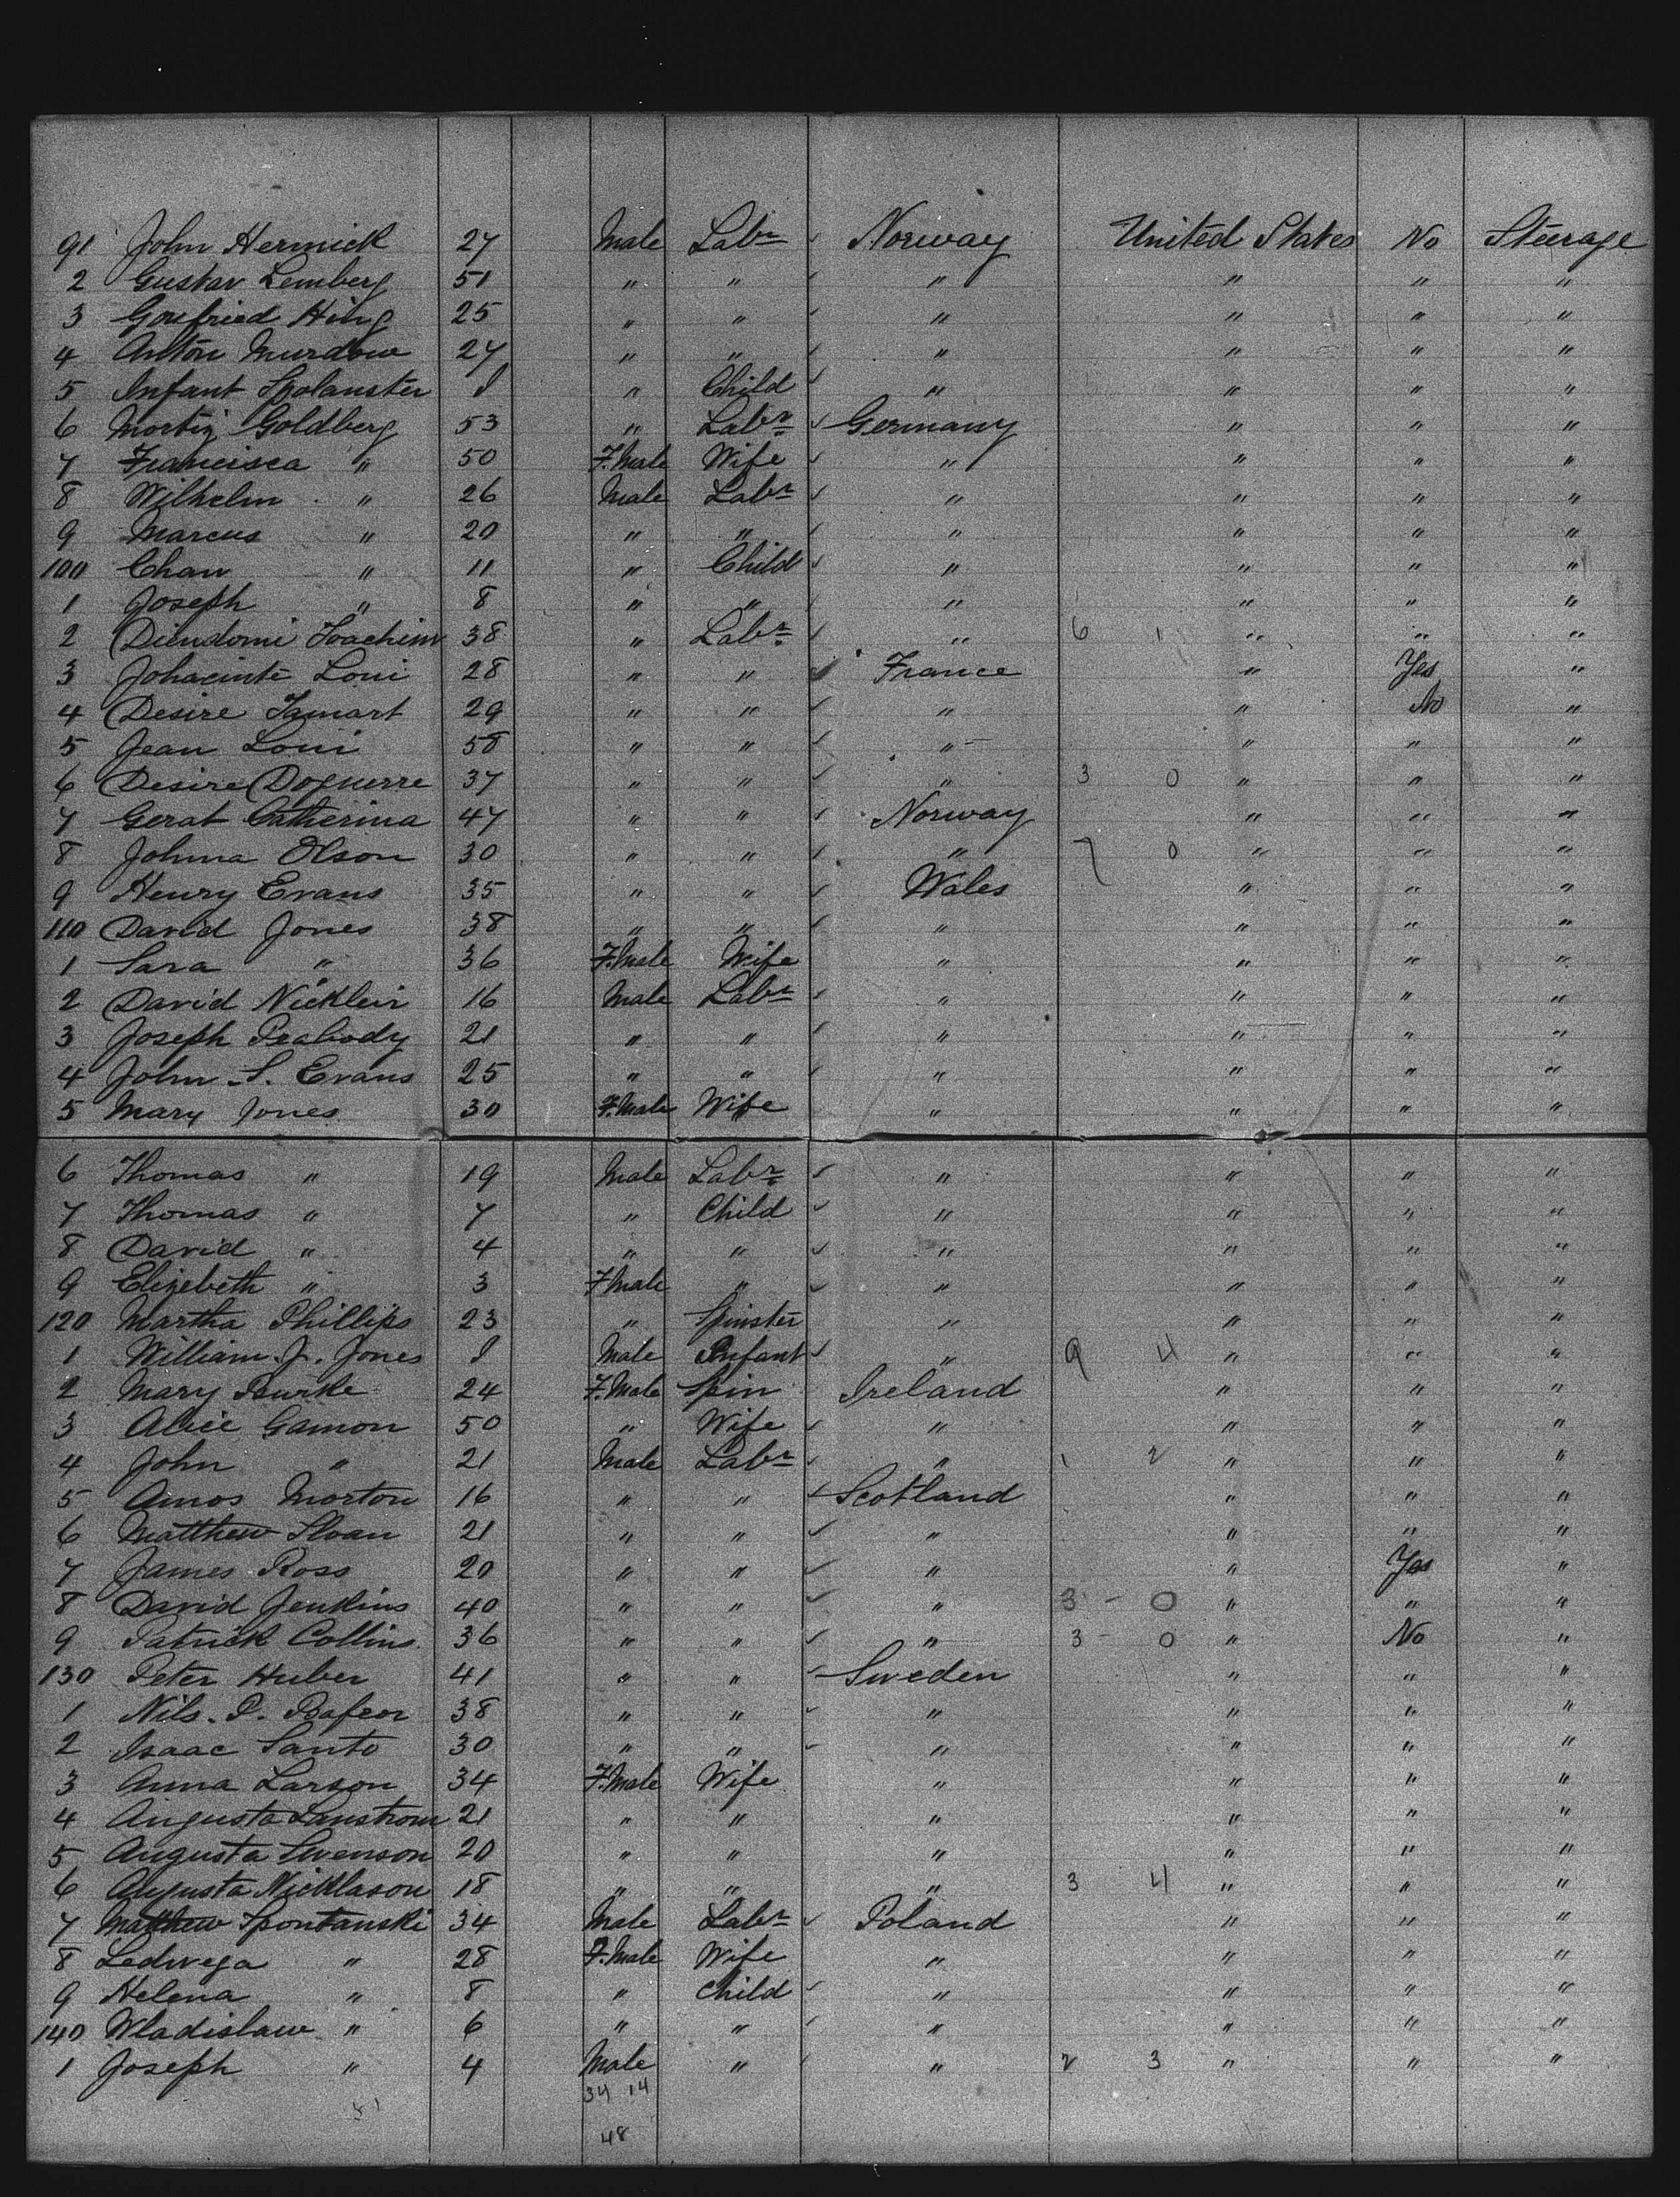 91 John Hermick 27 Male Labr Norway United States No Steerage
2 Gustav Lemberg 51 " " " " " "
3 Gousfried Hing 25 " " " " " "
4 Anton Murdow 27 " " " " " "
5 Infant Spolanster " Child " " " "
6 Mortiz Goldberg 53 " Labr Germany " " "
7 Francisca " 50 F.Male Wife " " " "
8 Wilhelm " 26 Male Labr " " " "
9 Marcus " 20 " " " " " "
100 Chan " 11 " Child " " " "
1 Joseph " 8 " " " " " "
2 Diendomi Joachim 38 " Labr " 6 1 " " "
3 Johacinte Loui 28 " " France " Yes "
4 Desire Tamart 29 " " " " No "
5 Jean Loui 58 " " " " " "
6 Desire Doguerre 37 " " " 3 0 " " "
7 Gerat Catherina 47 " " Norway " " "
8 Johna Olson 30 " " " 7 0 " " "
9 Henry Evans 35 " " Wales " " "
110 David Jones 38 " " " " " "
1 Sara " 36 F.Male Wife " " " "
2 David Nicklein 16 Male Labr " " " "
3 Joseph Peabody 21 " " " " " "
4 John S. Evans 25 " " " " " "
5 Mary Jones 30 F.Male Wife " " " "
6 Thomas " 19 Male Labr " " " "
7 Thomas " 7 " Child " " " "
8 David " 4 " " " " " "
9 Elizebeth " 3 F Male " " " " "
120 Martha Phillips 23 " Spinster " " " "
1 William J. Jones Male Infant " 9 4 " " "
2 Mary Bourke 24 F.Male Spin Ireland " " "
3 Alice Gamon 50 " Wife " " " "
4 John " 21 Male Labr " 1 2 " " "
5 Amos Morton 16 " " Scotland " " "
6 Matthew Sloan 21 " " " " " "
7 James Ross 20 " " " " Yes "
8 David Jenkins 40 " " " 3 - 0 " " "
9 Patrick Collins 36 " " " 3 - 0 " No "
130 Peter Huber 41 " " Sweden " " "
1 Nils. P. 38 " " " " " "
2 Isaac Santo 30 " " " " " "
3 Anna Larson 34 F.Male Wife " " " "
4 Augusta Lanstrom 21 " " " " " "
5 Augusta Swenson 20 " " " " " "
6 Augusta Nicklason 18 " " " 3 4 " " "
7 Matthew Spontanski 34 Male Labr Poland " " "
8 Ledwega " 28 F.Male Wife " " " "
9 Helena " 8 " Child " " " "
140 Wladislaw " 6 " " " " " "
1 Joseph " 4 Male " " 2 3 " " "
34 14
48